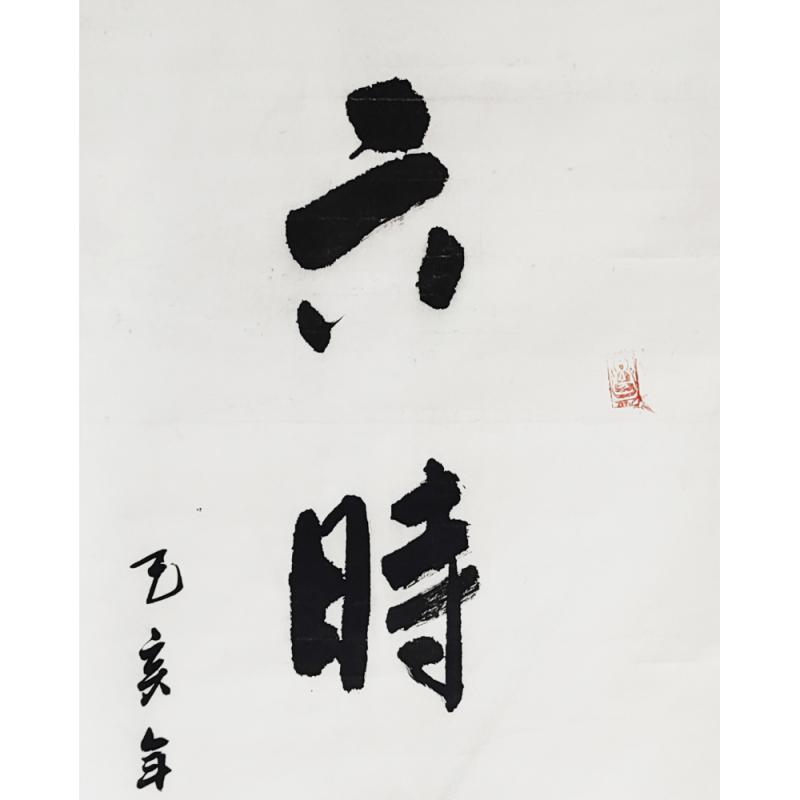 六時
己亥年